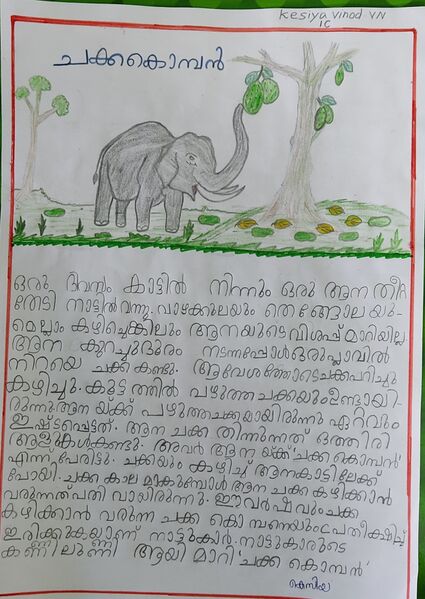 Kesiya Vinod VN
1C
ചക്കകൊമ്പൻ
ഒരു ദിവസം കാട്ടിൽ നിന്നും ഒരു ആന തീറ്റ
തേടി നാട്ടിൽ വന്നു. വാഴക്കുലയും തെങ്ങോലയു-
മെല്ലാം കഴിച്ചെങ്കിലും ആനയുടെ വിശപ്പ് മാറിയില്ല.
ആന കുറച്ചുദൂരം നടന്നപ്പോൾ ഒരു പ്ലാവിൽ
നിറയെ ചക്ക കണ്ടു. ആവേശത്തോടെ ചക്ക പറിച്ചു
കഴിച്ചു. കൂട്ടത്തിൽ പഴുത്ത ചക്കയും ഉണ്ടായി-
രുന്നു. ആനയ്ക്ക് പഴുത്ത ചക്കയായിരുന്നു ഏറ്റവും
ഇഷ്ടപ്പെട്ടത്. ആന ചക്ക തിന്നുന്നത് ഒത്തിരി
ആളുകൾ കണ്ടു. അവർ ആനയ്ക്ക് 'ചക്ക കൊമ്പൻ'
എന്ന് പേരിട്ടു. ചക്കയും കഴിച്ച് ആന കാട്ടിലേക്ക്
പോയി. ചക്ക കാലമാകുമ്പോൾ ആന ചക്ക കഴിക്കാൻ
വരുന്നത് പതിവായിരുന്നു. ഈ വർഷവും ചക്ക
കഴിക്കാൻ വരുന്ന ചക്ക കൊമ്പനെയും പ്രതീക്ഷിച്ച്
ഇരിക്കുകയാണ് നാട്ടുകാർ. നാട്ടുകാരുടെ
കണ്ണിലുണ്ണി ആയി മാറി 'ചക്ക കൊമ്പൻ'
കെസിയ